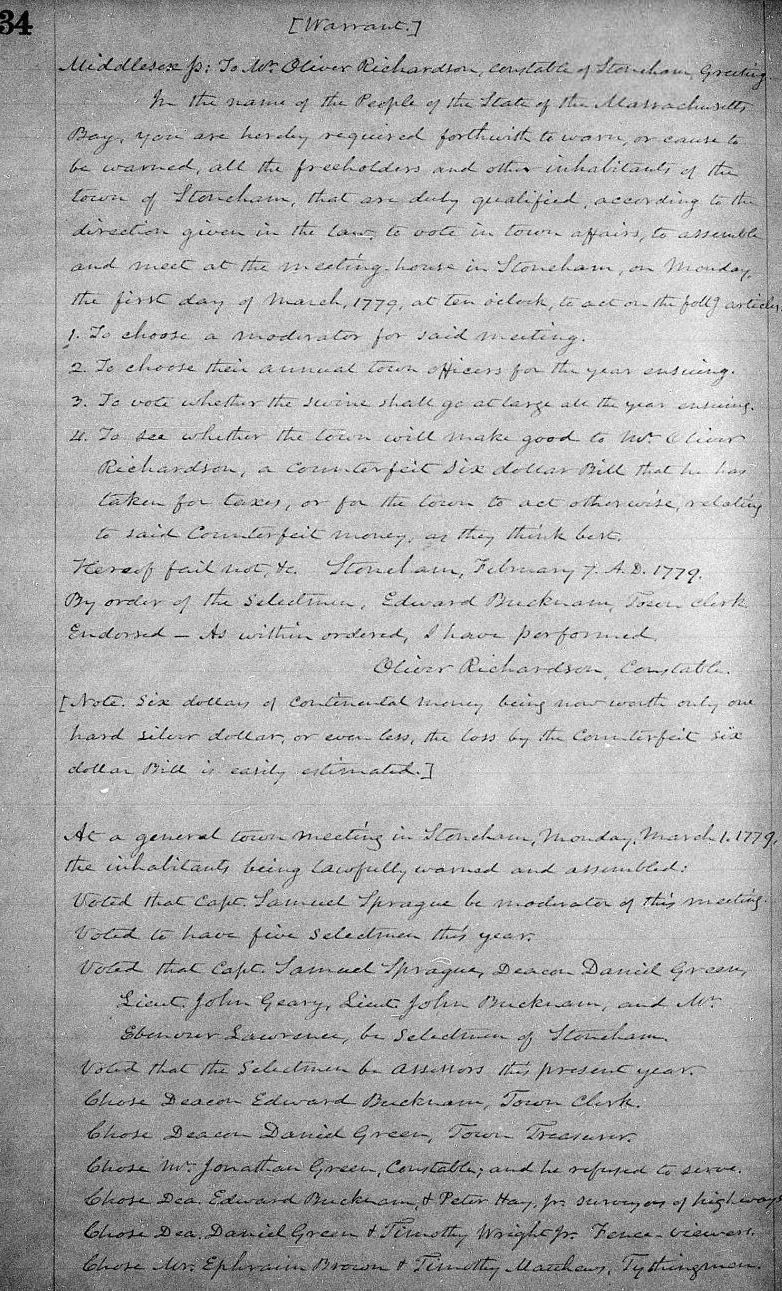 34
[Warrant.]
Middlesex ss: To Mr. Oliver Richardson, constable of Stoneham, Greeting
In the name of the People of the State of the Massachusetts
Bay, you are hereby required forthwith to warn, or cause to
be warned, all the freeholders and other inhabitants of the
town of Stoneham, that are duly qualified, according to the
direction given in the law, to vote in town affairs, to assemble
and meet at the meeting-house in Stoneham, on Monday,
the first day of March, 1779, at ten o'clock, to act on the follg articles,
1. To choose a moderator for said meeting.
2. To choose their annual town officers for the year ensuing.
3. To vote whether the swine shall go at large all the year ensuing.
4. To see whether the town will make good to Mr. Oliver
Richardson, a counterfeit six dollar Bill that he has
taken for taxes, or for the town to act otherwise, relating
to said Counterfeit money, as they think best.
Hereof fail not, &c. Stoneham, February 7. A.D. 1779.
By order of the Selectmen, Edward Bucknam, Town Clerk
Endorsed — As within ordered, I have performed.
Oliver Richardson, Constable.
[Note. Six dollars of Continental money being now worth only one
hard silver dollar, or even less, the loss by the Counterfeit six
dollar Bill is easily estimated.]
At a general town meeting in Stoneham, Monday, March 1. 1779,
the inhabitants being lawfully warned and assembled:
Voted that Capt. Samuel Sprague be moderator of this meeting.
Voted to have five Selectmen this year.
Voted that Capt. Samuel Sprague, Deacon Daniel Green,
Lieut. John Geary, Lieut. John Bucknam, and Mr.
Ebenezer Lawrence, be Selectmen of Stoneham.
Voted that the Selectmen be Assessors this present year.
Chose Deacon Edward Bucknam, Town Clerk.
Chose Deacon Daniel Green, Town Treasurer.
Chose Mr. Jonathan Green, Constable; and he refused to serve.
Chose Dea. Edward Bucknam, & Peter Hay, jr. surveyors of highways
Chose Dea. Daniel Green & Timothy Wright jr. Fence-viewers.
Chose Mr. Ephraim Brown & Timothy Matthews, Tythingmen.